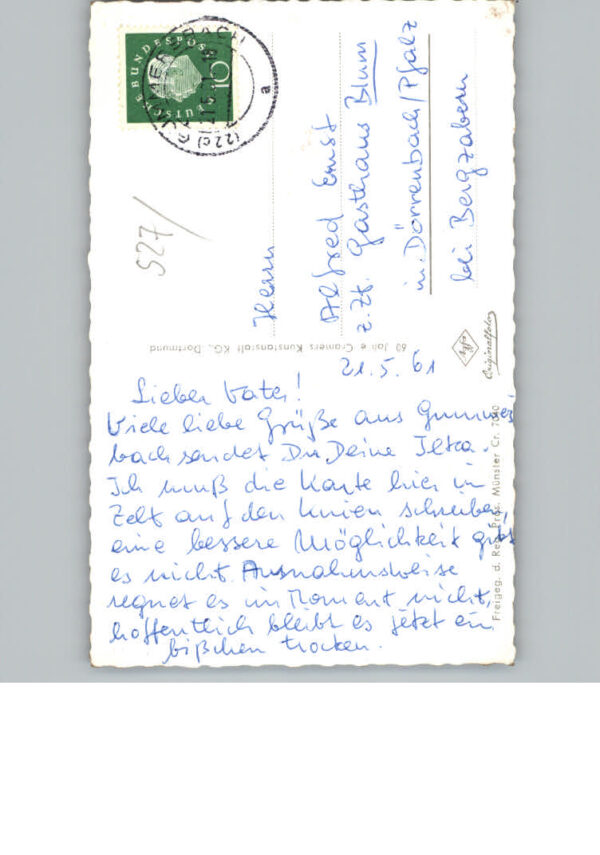 21.5.61
Lieber Vater!
Viele liebe Grüße aus Gummers
bach sendet Dir Deine Ilka.
Ich muß die Karte hier im
Zelt auf den Knien schreiben,
eine bessere Möglichkeit gibt
es nicht. Ausnahmsweise
regnet es im Moment nicht,
hoffentlich bleibt es jetzt ein
bißchen trocken.
Herrn
Alfred Ernst
z. Zt. Gasthaus Blum
in Dörrenbach/Pfalz
bei Bergzabern
527/
DEUTSCHE BUNDESPOST
10
GUMMERSBACH
(22c)
a
Cramers Kunstanstalt KG., Dortmund
Agfa
Originalfoto
Freigeg. d. Reg. Präs. Münster Cr.